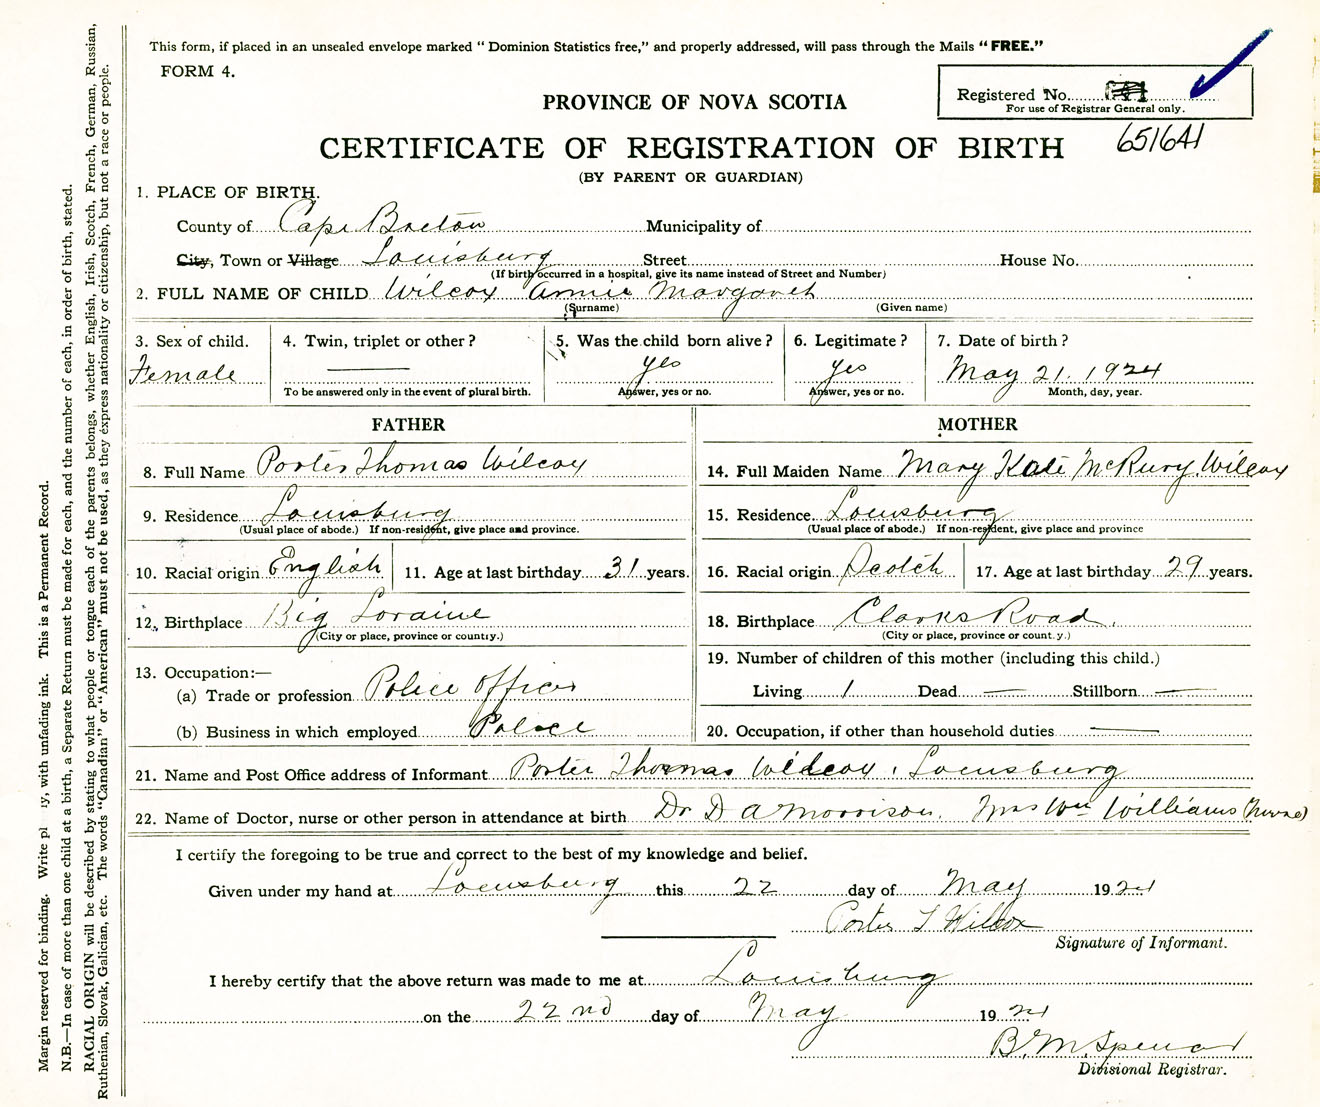 This form, if placed in an unsealed envelope marked "Dominion Statistics free," and properly addressed, will pass through the Mails "FREE."
FORM 4.
Registered No.
For use of Registrar General only.
651641
PROVINCE OF NOVA SCOTIA
CERTIFICATE OF REGISTRATION OF BIRTH
(BY PARENT OR GUARDIAN)
1. PLACE OF BIRTH.
County of Cape Breton Municipality of
City, Town or Village Louisburg Street House No.
(If birth occurred in a hospital, give its name instead of Street and Number)
2. FULL NAME OF CHILD Wilcox Annie Margaret
(Surname) (Given name)
3. Sex of child. Female
4. Twin, triplet or other? —
To be answered only in the event of plural birth.
5. Was the child born alive? yes
Answer, yes or no.
6. Legitimate? yes
Answer, yes or no.
7. Date of birth? May 21. 1924
Month, day, year.
FATHER
8. Full Name Porter Thomas Wilcox
9. Residence Louisburg
(Usual place of abode.) If non-resident, give place and province.
10. Racial origin English 11. Age at last birthday 31 years.
12. Birthplace Big Loraine
(City or place, province or country.)
13. Occupation:—
(a) Trade or profession Police Officer
(b) Business in which employed Police
MOTHER
14. Full Maiden Name Mary Kate McRury Wilcox
15. Residence Louisburg
(Usual place of abode.) If non-resident, give place and province
16. Racial origin Scotch 17. Age at last birthday 29 years.
18. Birthplace Clarks Road.
(City or place, province or country.)
19. Number of children of this mother (including this child.)
Living 1 Dead — Stillborn —
20. Occupation, if other than household duties —
21. Name and Post Office address of Informant Porter Thomas Wilcox, Louisburg
22. Name of Doctor, nurse or other person in attendance at birth Dr D A Morrison. Mrs Wm Williams (Nurse)
I certify the foregoing to be true and correct to the best of my knowledge and belief.
Given under my hand at Louisburg this 22 day of May 1924
Porter T Wilcox
Signature of Informant.
I hereby certify that the above return was made to me at Louisburg
on the 22nd day of May 1924
B. M. Spencer
Divisional Registrar.
Margin reserved for binding. Write pl  ly, with unfading ink. This is a Permanent Record.
N.B.—In case of more than one child at a birth, a Separate Return must be made for each, and the number of each, in order of birth, stated.
RACIAL ORIGIN will be described by stating to what people or tongue each of the parents belongs, whether English, Irish, Scotch, French, German, Russian,
Ruthenian, Slovak, Galician, etc. The words "Canadian" or "American" must not be used, as they express nationality or citizenship, but not a race or people.